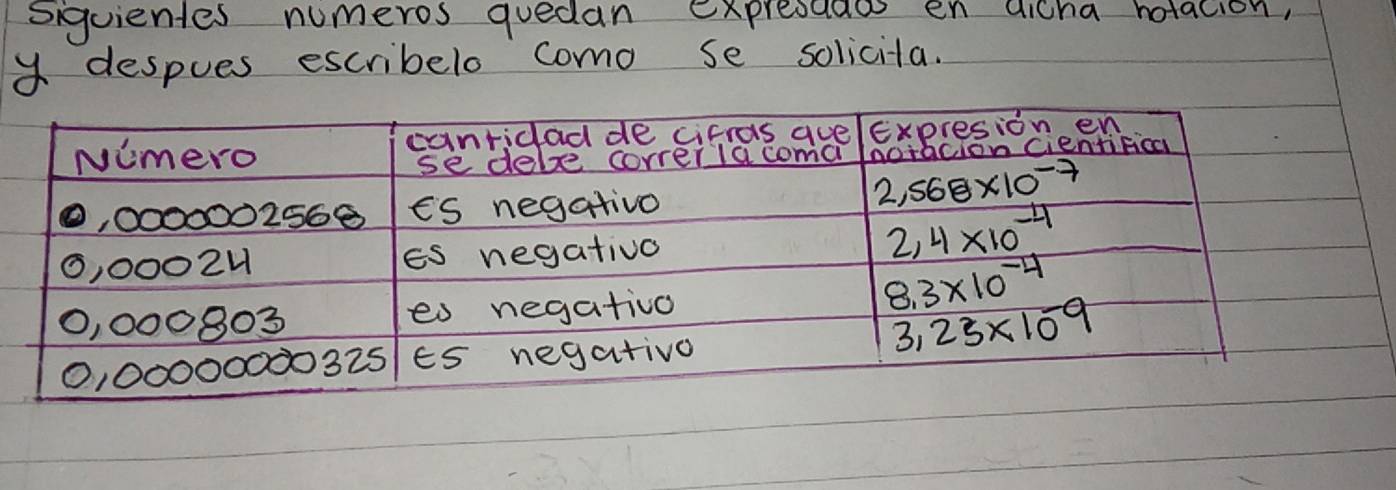 siguientes numeros quedan expresados en dicha notación,
y despues escribelo como se solicita.
Número cantidad de cifras que se debe correr la coma Expresión en notación Cientifica
0,0000002568 es negativo 2,568×10⁻⁷
0,00024 es negativo 2,4×10⁻⁴
0,000803 es negativo 8,3×10⁻⁴
0,00000000325 es negativo 3,25×10⁻⁹